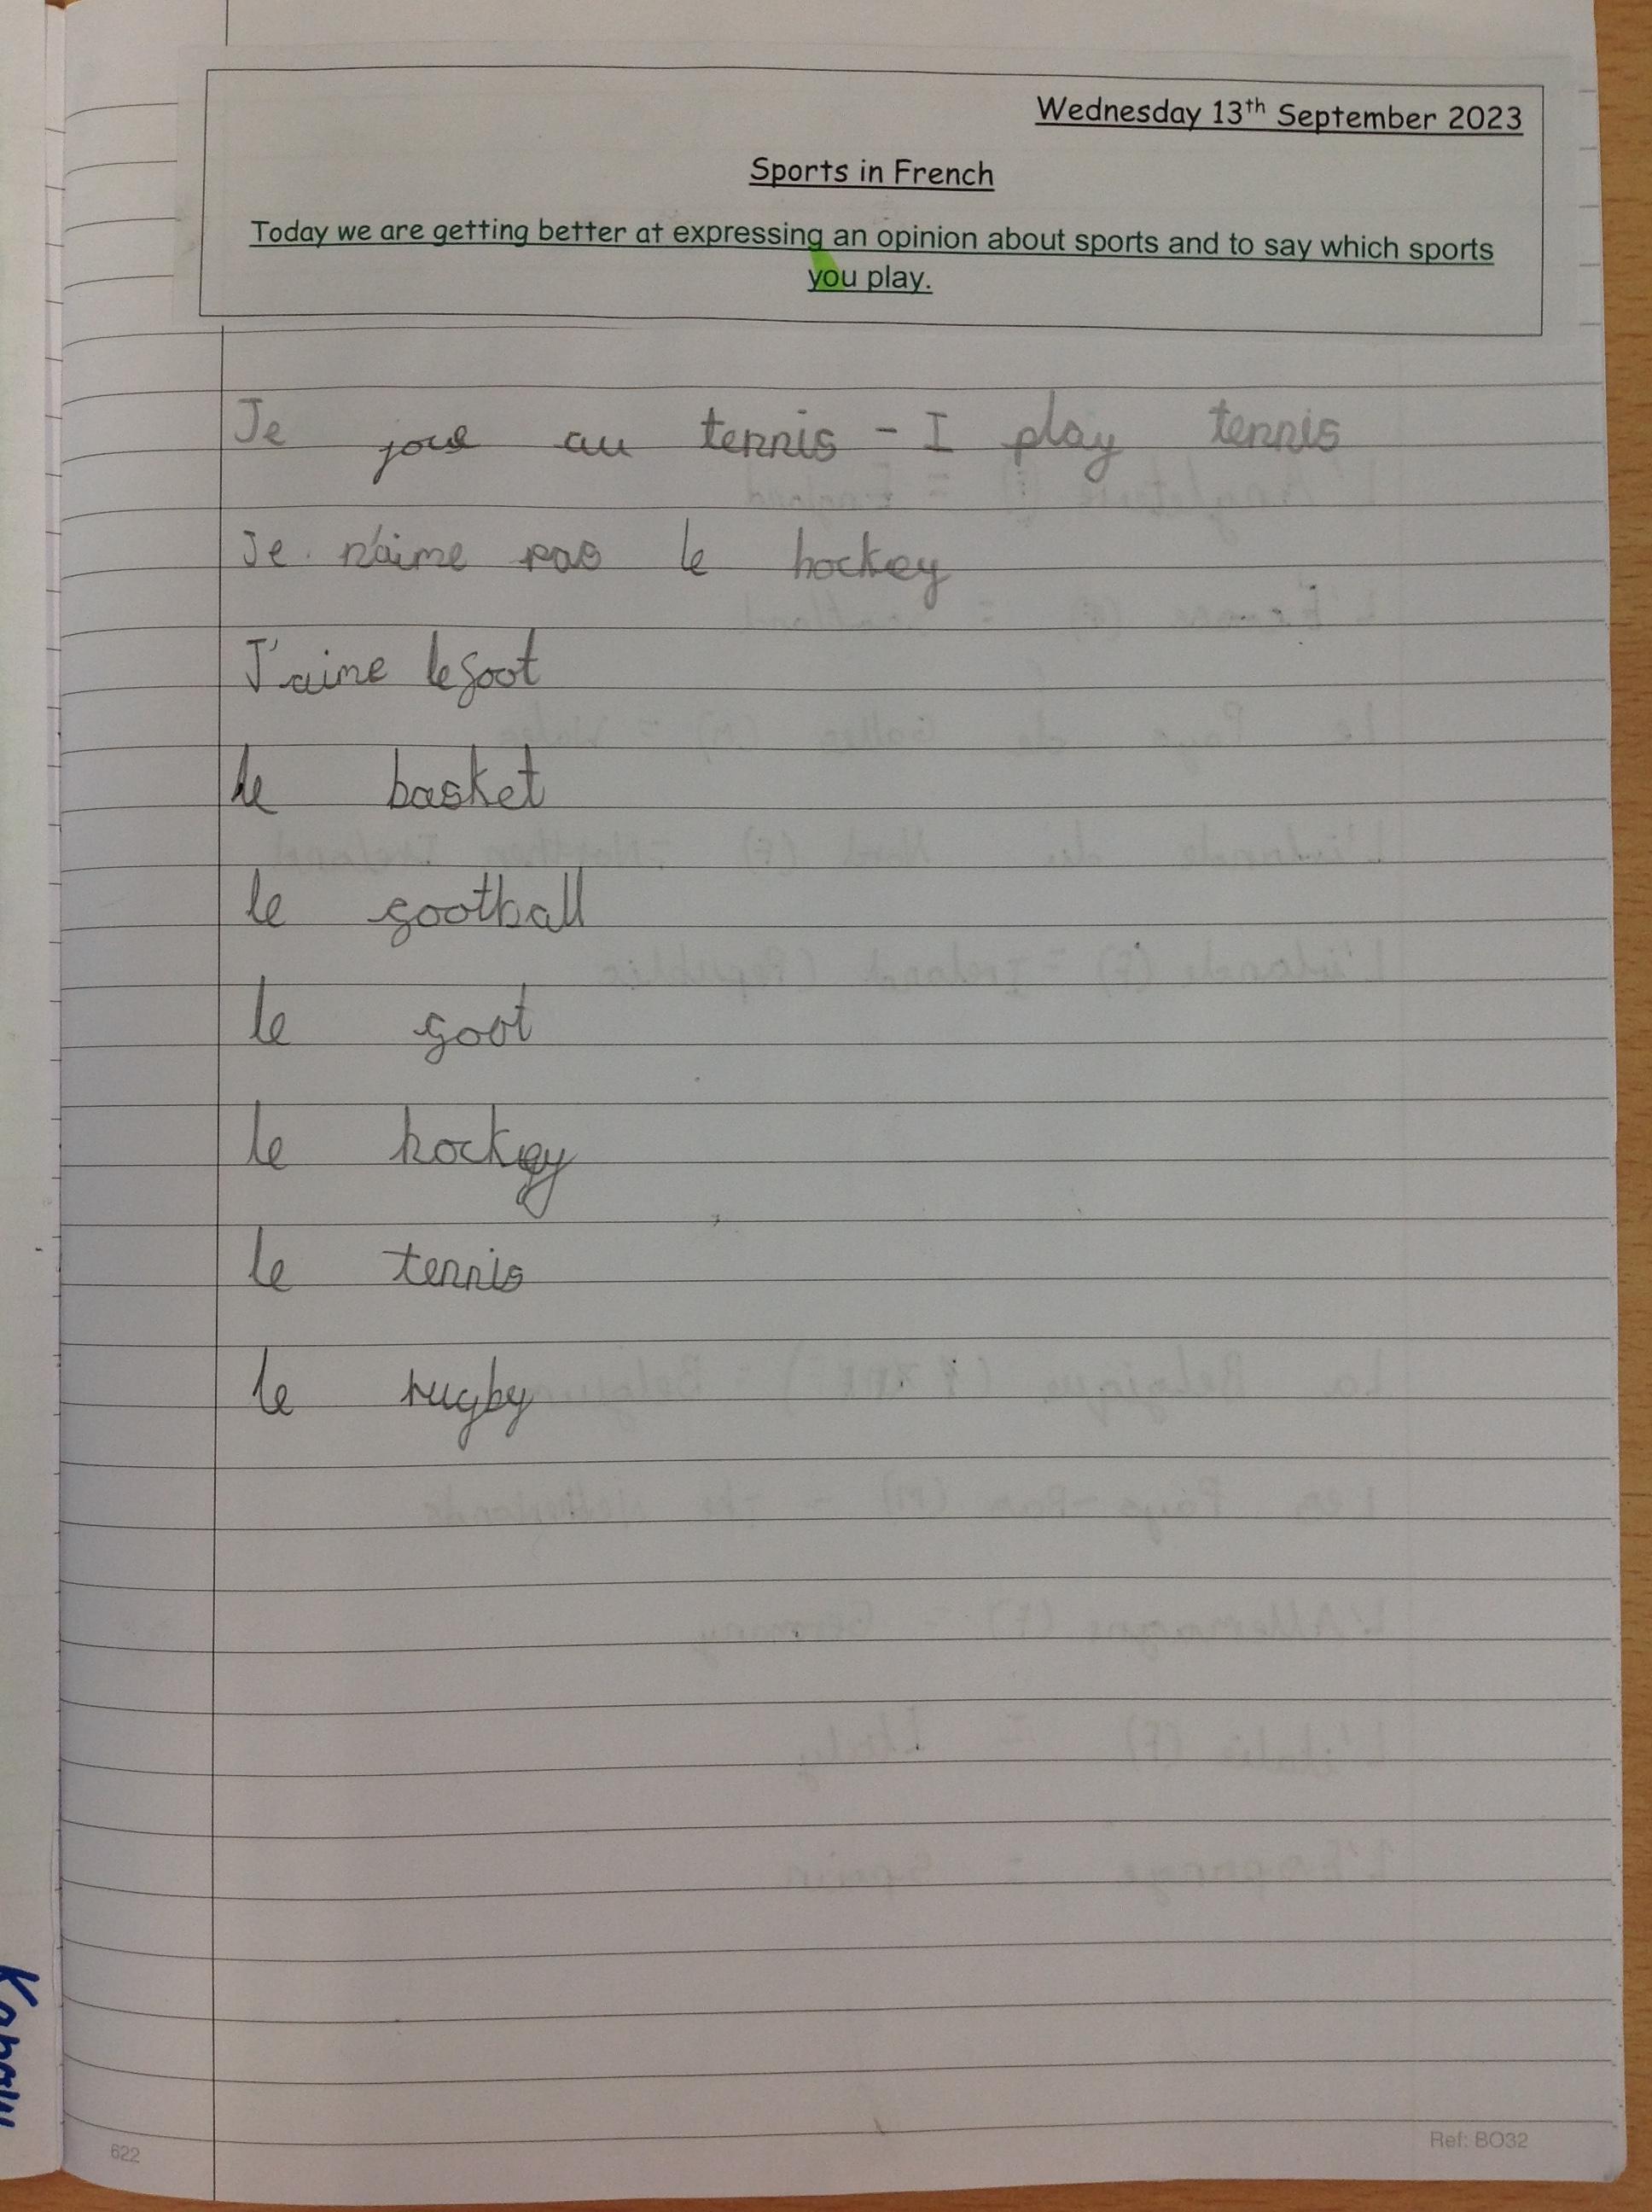 Wednesday 13th September 2023
Sports in French
Today we are getting better at expressing an opinion about sports and to say which sports
you play.
Je joue au tennis - I play tennis
Je n'aime pas le hockey
J'aime le foot
le basket
le football
le foot
le hockey
le tennis
le rugby
622
Ref: BO32